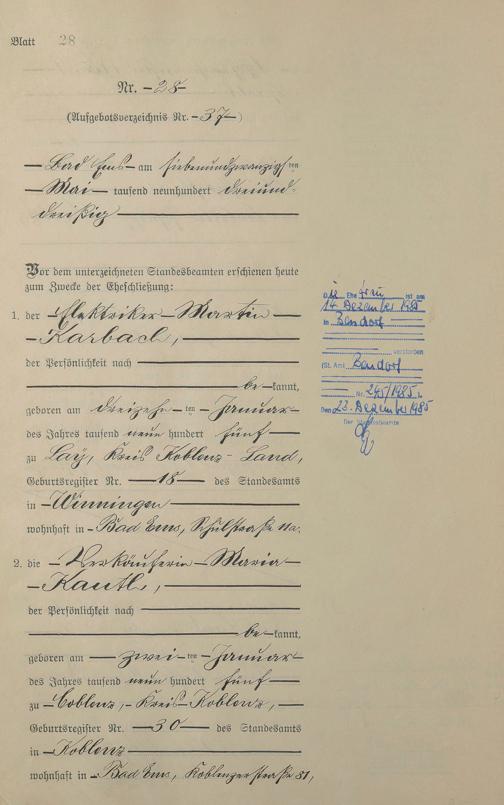 Blatt 28
Nr. 28
(Aufgebotsverzeichnis Nr. 37)
Bad Ems am siebenundzwanzigsten
Mai tausend neunhundert dreiund-
dreißig
Vor dem unterzeichneten Standesbeamten erschienen heute
zum Zwecke der Eheschließung:
1. der Elektriker Martin
Karbach,
der Persönlichkeit nach
bekannt,
geboren am dreizehnten Januar
des Jahres tausend neun hundert fünf
zu Lay, Kreis Koblenz-Land,
Geburtsregister Nr. 18 des Standesamts
in Winningen
wohnhaft in Bad Ems, Schulstraße 11a.
2. die Verkäuferin Maria
der Persönlichkeit nach
bekannt,
geboren am zweiten Januar
des Jahres tausend neun hundert fünf
zu Coblenz, Kreis Koblenz,
Geburtsregister Nr. 30 des Standesamts
in Koblenz
wohnhaft in Bad Ems, Koblenzerstraße 81,
Die Ehefrau ist am
14. Dezember 1985
in Bendorf
verstorben
(St. Amt Bendorf
Nr. 245/1985)
Den 23. Dezember 1985
Der Standesbeamte